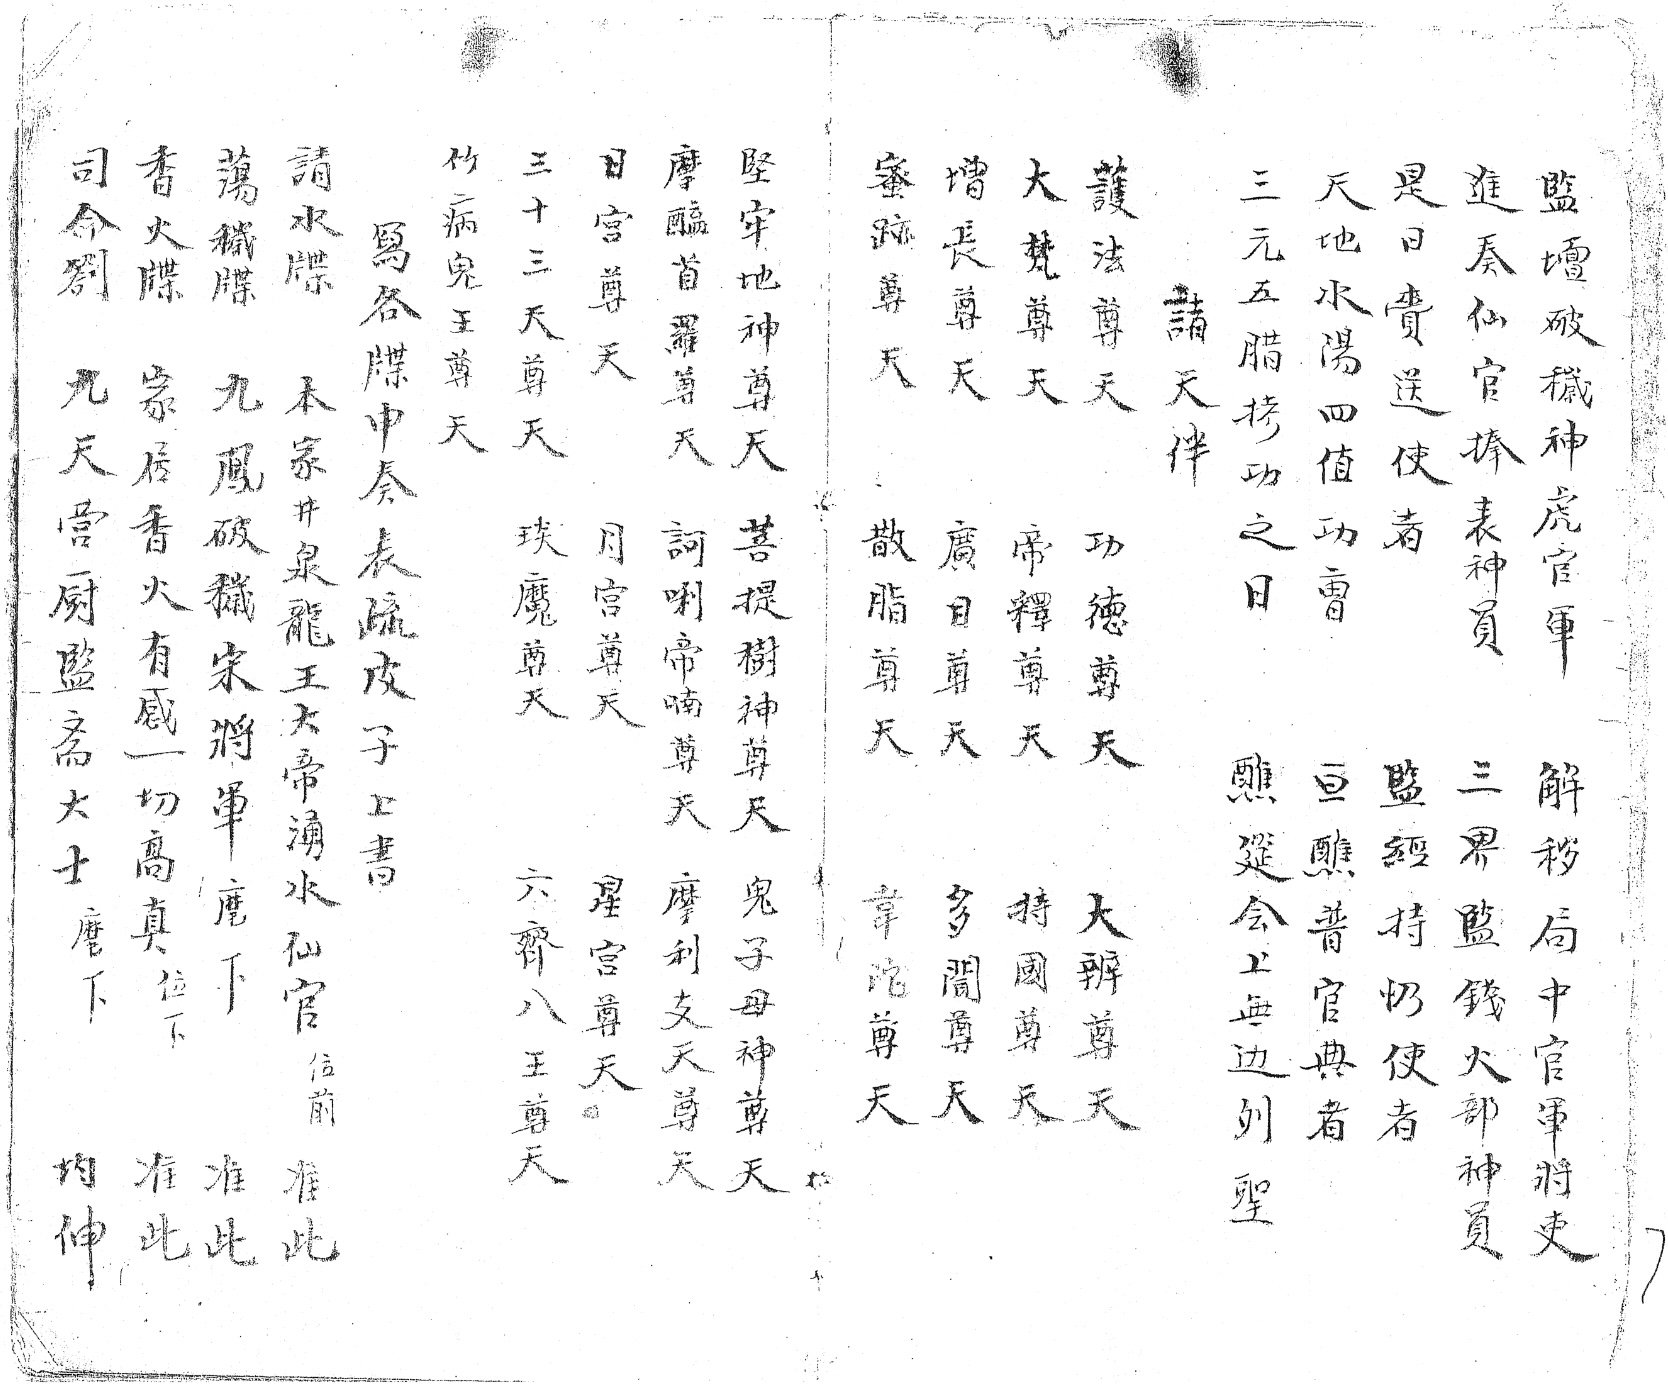 監壇破穢神虎官軍 解秽局中官軍將吏
進奏仙官捧表神員 三界監錢火部神員
是日賫送使者 監經持忉使者
天地水陽四值功曹 亘醮普官典者
三元五腊挍功之日 醮筵会上無边列聖
請天伴
護法尊天 功德尊天 大辨尊天
大梵尊天 帝釋尊天 持國尊天
增長尊天 廣目尊天 多聞尊天
蜜跡尊天 散脂尊天 韋陀尊天
堅牢地神尊天 菩提樹神尊天 鬼子母神尊天
摩醯首羅尊天 訶唎帝喃尊天 摩利支天尊天
日宮尊天 月宮尊天 星宮尊天
三十三天尊天 琰魔尊天 六齋八王尊天
竹病鬼王尊天
寫各牒申奏表疏皮子上書
請水牒 本家井泉龍王大帝湧水仙官 位前 准此
蕩穢牒 九鳳破穢宋將軍 麾下 准此
香火牒 家居香火有感一切高真 位下 准此
司命劄 九天宫厨監斋大士 麾下 均伸